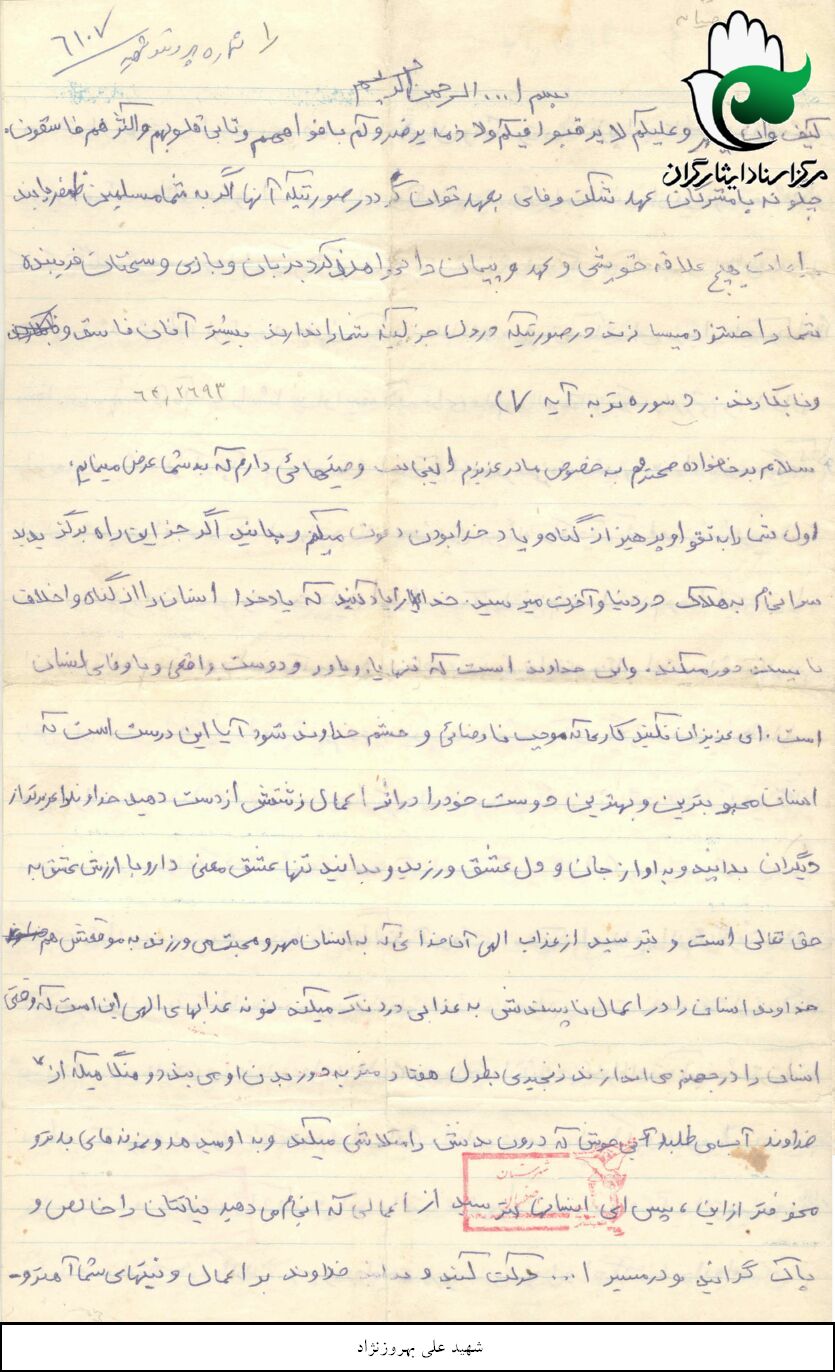 شماره پرونده شهید ۶۱۰۷
مرکز اسناد ایثارگران
بسم ا... الرحمن الرحیم
کیف وان و علیکم لا یرقبوا فیکم ولا ذمه یرضونکم بافواههم وتابی قلوبهم واکثرهم فاسقون.
چگونه با مشرکان عهد شکن وفای بعهد توان کرد درصورتیکه آنها اگر به شما مسلمین ظفر یابند
مراعات هیچ علاقه خویشی و عهد و پیمان را نخواهند کرد بزبان وبازی و سخنان فریبنده
شما را خشنود میسازند درصورتیکه در دل جز کینه شما را ندارند بیشتر آنان فاسق و
ونابکارند. (سوره توبه آیه ۷)
۶۴,۲۶۹۳
سلام بر خانواده محترمم به خصوص مادر عزیزم اینجانب وصیتهائی دارم که به شما عرض مینمایم.
اول شما را به تقوا و پرهیز از گناه و یاد خدا بودن دعوت میکنم و بدانید اگر جز این راه برگزیدید
سرانجام به هلاک در دنیا و آخرت میرسید. خدا را یاد کنید که یاد خدا انسان را از گناه و اخلاق
ناپسند دور میکند. واین خداوند است که تنها یار و یاور و دوست واقعی و باوفای انسان
است. ای عزیزان نکنید کاری که موجب نارضائی و خشم خداوند شود آیا این درست است که
انسان محبوبترین و بهترین دوست خود را در اثر اعمال زشتش از دست دهد خداوند را عزیزتر از
دیگران بدانید و به او از جان و دل عشق ورزید و بدانید تنها عشق معنی دار و با ارزش عشق به
حق تعالی است و بترسید از عذاب الهی آن خدائی که به انسان مهر و محبت می ورزد به موقعش هم
خداوند انسان را در اعمال ناپسندش به عذابی دردناک میکند نمونه عذابهای الهی این است که وقتی
انسان را در جهنم می اندازند زنجیری بطول هفتاد متر به دور بدن او می بندد و هنگامیکه از
خداوند آب می طلبد آبی جوش که درون بدنش را متلاشی میکند و به او میدهد و نمونه های بدتر و
مخوفتر از این، پس ای انسانها بترسید از اعمالی که انجام می دهید نیاتتان را خالص و
پاک گردانید و در مسیر ا... حرکت کنید و خداوند بر اعمال و نیتهای شما آگاهتر و
شهید علی بهروزنژاد